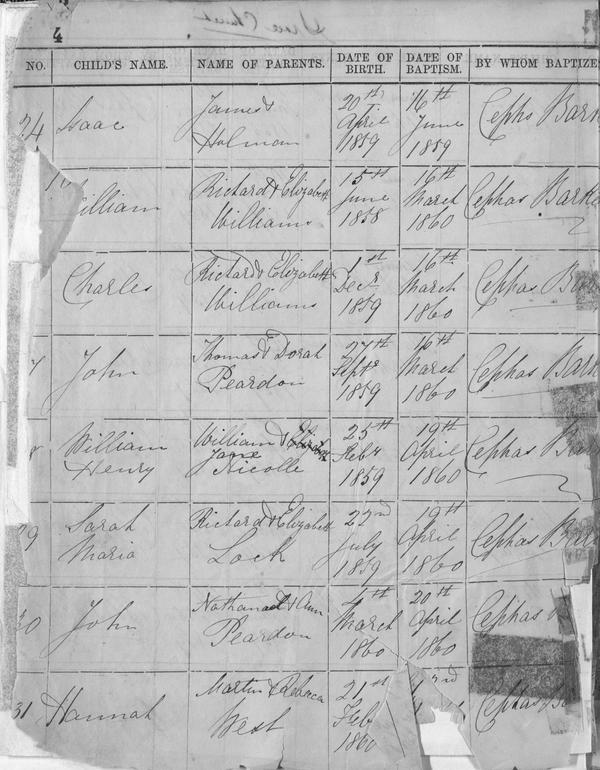 4
NO. CHILD'S NAME. NAME OF PARENTS. DATE OF BIRTH. DATE OF BAPTISM. BY WHOM BAPTIZE
24 Isaac James & Holman 20th April 1859 16th June 1859 Cephs Bark
William Richard & Elizabeth Williams 15th June 1858 16th March 1860 Cephas Bark
Charles Richard & Elizabeth Williams 1st Decr 1859 16th March 1860 Cephas Bar
7 John Thomas & Dorah Peardon 27th Septr 1859 16th March 1860 Cephas Bark
8 William Henry William & Jane Nicolle 25th Feby 1859 19th April 1860 Cephas Bar
29 Sarah Maria Richard & Elizabeth Lock 22nd July 1859 19th April 1860 Cephas Bark
30 John Nathanael & Ann Peardon 4th March 1860 20th April 1860 Cephas
31 Hannah Martin & Rebecca West 21st Feby 1860 Cephas Ba